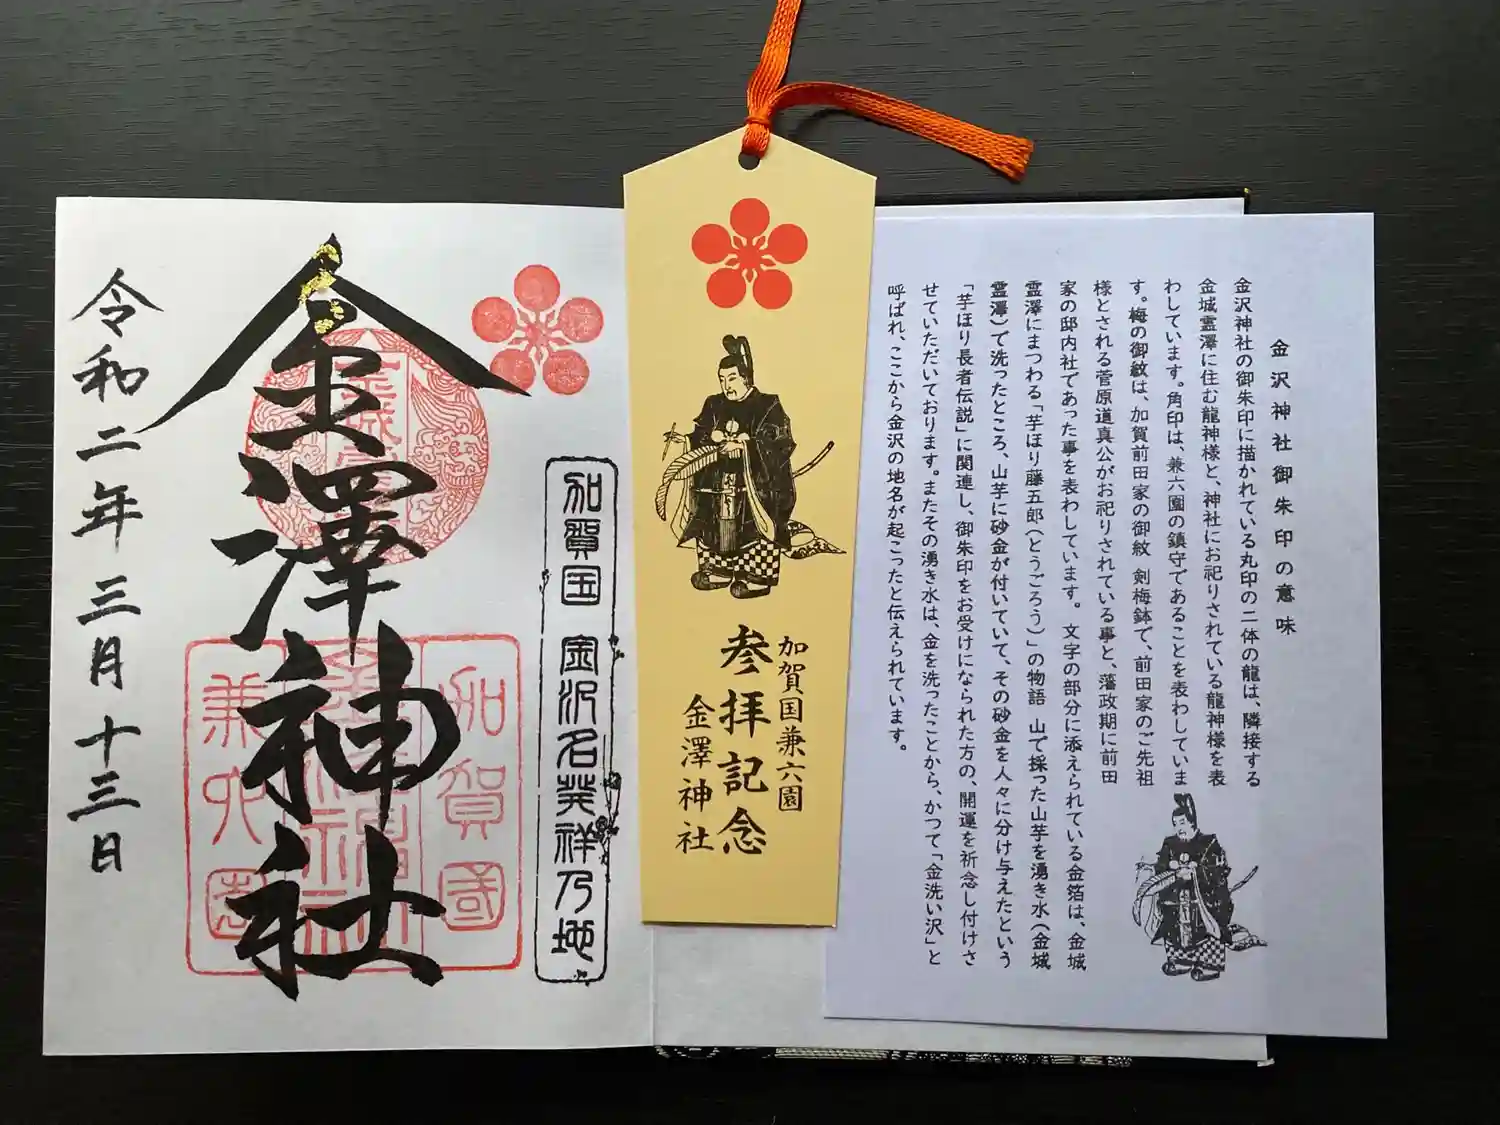 金沢神社御朱印の意味
金沢神社の御朱印に描かれている丸印の二体の龍は、隣接する
金城霊澤に住む龍神様と、神社にお祀りされている龍神様を表
わしています。角印は、兼六園の鎮守であることを表わしていま
す。梅の御紋は、加賀前田家の御紋 剣梅鉢で、前田家のご先祖
様とされる菅原道真公がお祀りされている事と、藩政期に前田
家の邸内社であった事を表わしています。 文字の部分に添えられている金箔は、金城
霊澤にまつわる「芋ほり藤五郎(とうごろう)」の物語 山で採った山芋を湧き水(金城
霊澤)で洗ったところ、山芋に砂金が付いていて、その砂金を人々に分け与えたという
「芋ほり長者伝説」に関連し、御朱印をお受けになられた方の、開運を祈念し付けさ
せていただいております。またその湧き水は、金を洗ったことから、かつて「金洗い沢」と
呼ばれ、ここから金沢の地名が起こったと伝えられています。
加賀国兼六園
参拝記念
金澤神社
加賀国 金沢名発祥乃地
加賀國
兼六園
金澤神社
令和二年三月十三日